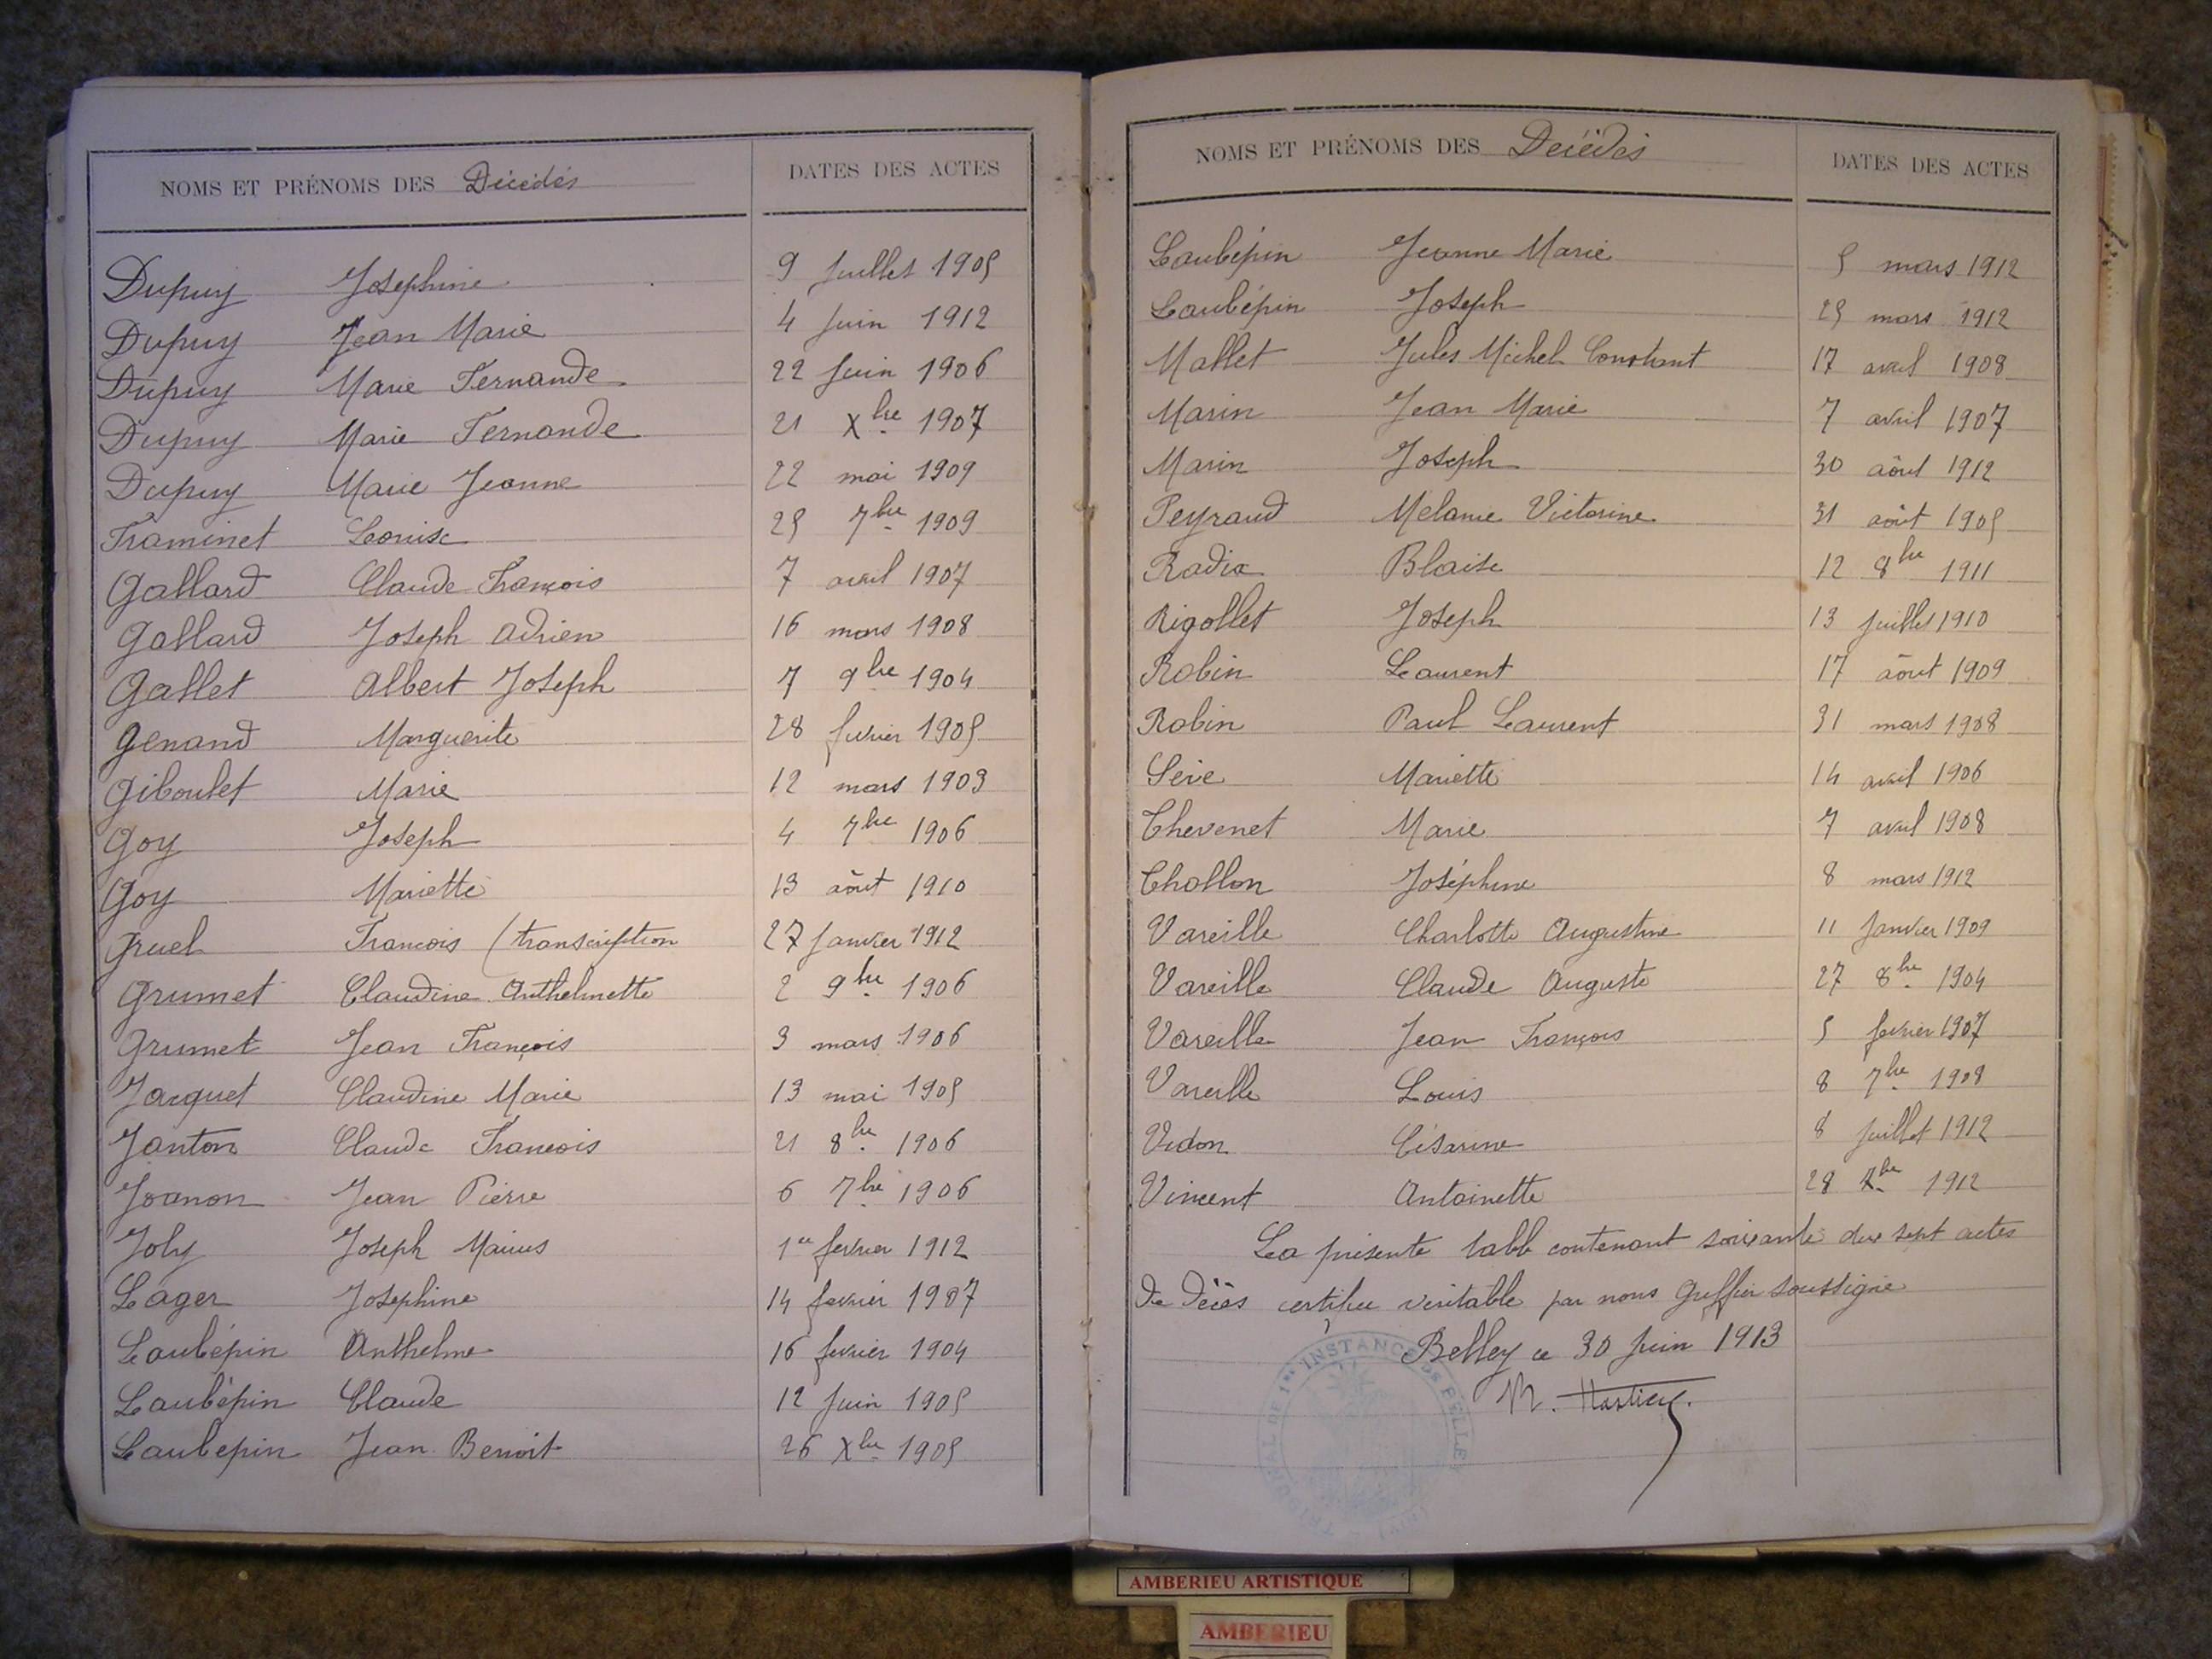 NOMS ET PRÉNOMS DES Décédés DATES DES ACTES
Dupuy Josephine 9 Juillet 1905
Dupuy Jean Marie 4 Juin 1912
Dupuy Marie Fernande 22 Juin 1906
Dupuy Marie Fernande 21 Xbre 1907
Dupuy Marie Jeanne 22 mai 1909
Framinet Louise 25 7bre 1909
Gallard Claude François 7 avril 1907
Gallard Joseph Adrien 16 mars 1908
Gallet Albert Joseph 7 9bre 1904
Genand Marguerite 28 fevrier 1905
Giboulet Marie 12 mars 1903
Goy Joseph 4 7bre 1906
Goy Mariette 13 août 1910
Gruel Francois (transcription 27 Janvier 1912
Grumet Claudine Anthelmette 2 9bre 1906
Grumet Jean François 3 mars 1906
Jacquet Claudine Marie 13 mai 1905
Janton Claude Francois 21 8bre 1906
Joanon Jean Pierre 6 7bre 1906
Joly Joseph Marius 1er fevrier 1912
Lager Josephine 14 fevrier 1907
Laubépin Anthelme 16 fevrier 1904
Laubépin Claude 12 Juin 1905
Laubepin Jean Benoit 26 Xbre 1905
NOMS ET PRÉNOMS DES Décédés DATES DES ACTES
Laubépin Jeanne Marie 5 mars 1912
Laubépin Joseph 25 mars 1912
Mallet Jules Michel Constant 17 avril 1908
Marin Jean Marie 7 avril 1907
Marin Joseph 30 août 1912
Peyraud Melanie Victorine 31 août 1905
Radix Blaise 12 8bre 1911
Rigollet Joseph 13 Juillet 1910
Robin Laurent 17 août 1909
Robin Paul Laurent 31 mars 1908
Sève Mariette 14 avril 1906
Thevenet Marie 7 avril 1908
Thollon Joséphine 8 mars 1912
Vareille Charlotte Augustine 11 Janvier 1909
Vareille Claude Auguste 27 8bre 1904
Vareille Jean François 5 fevrier 1907
Vareille Louis 8 7bre 1908
Vidon Césarine 8 Juillet 1912
Vincent Antoinette 28 Xbre 1912
La présente table contenant soixante dix sept actes
de décès certifiée veritable par nous Greffier soussigné
Belley ce 30 Juin 1913
TRIBUNAL DE 1re INSTANCE DE BELLEY
AMBERIEU ARTISTIQUE
AMBERIEU